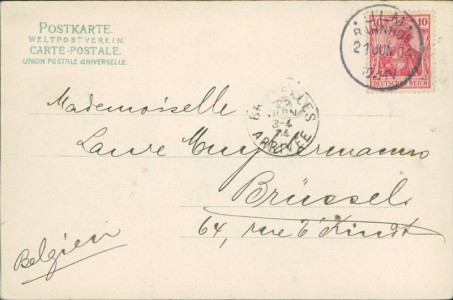 POSTKARTE.
WELTPOSTVEREIN.
CARTE-POSTALE.
UNION POSTALE UNIVERSELLE.
10 10
DEUTSCHES REICH
ULM
BAHNHOF
21 JUN 04
BRUXELLES
22
JUIN
3-4
04
ARRIVÉE
Mademoiselle
Laure
Brüssel
64, rue
Belgien